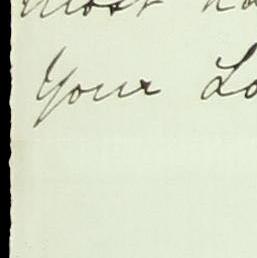 most
Your Lo